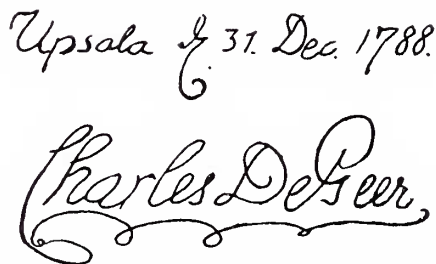 Upsala d. 31. Dec. 1788.
Charles DeGeer